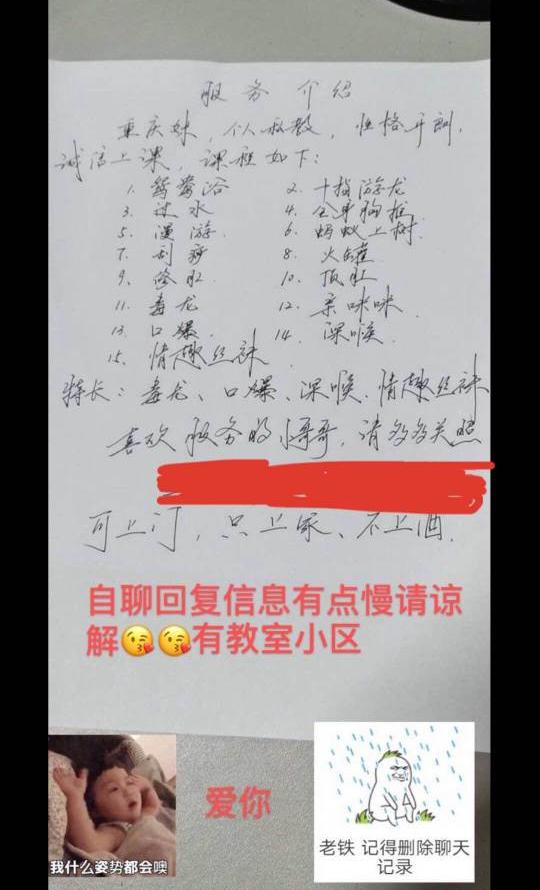 服务介绍
重庆妹，个人私教，性格开朗，
诚信上课，课程如下：
1. 鸳鸯浴 2. 十指游龙
3. 过水 4. 全身胸推
5. 漫游 6. 蚂蚁上树
7. 刮痧 8. 火罐
9. 修肛 10. 顶肛
11. 毒龙 12. 亲咪咪
13. 口爆 14. 深喉
15. 情趣丝袜
特长：毒龙、口爆、深喉、情趣丝袜
喜欢服务的小哥哥，请多多关照
可上门，只上家、不上酒.
自聊回复信息有点慢请谅
解😘😘有教室小区
爱你
我什么姿势都会噢
老铁 记得删除聊天
记录